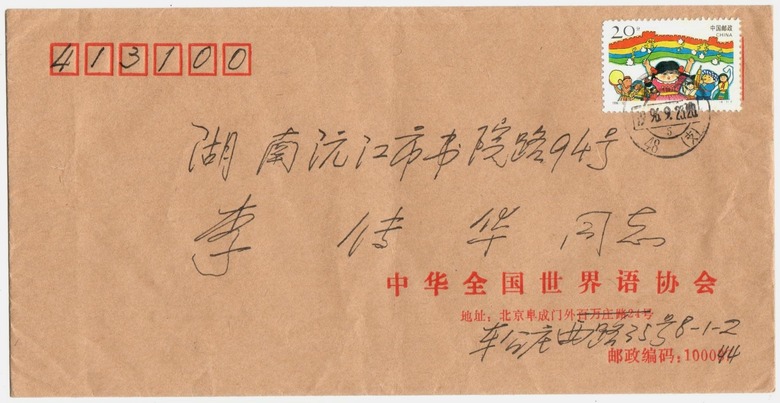 413100
20分
中国邮政
CHINA
96.9.23.20
48
湖南沅江市书院路94号
李传华 同志
中华全国世界语协会
地址：北京阜成门外百万庄路24号
车公庄西路35号8-1-2
邮政编码：100044